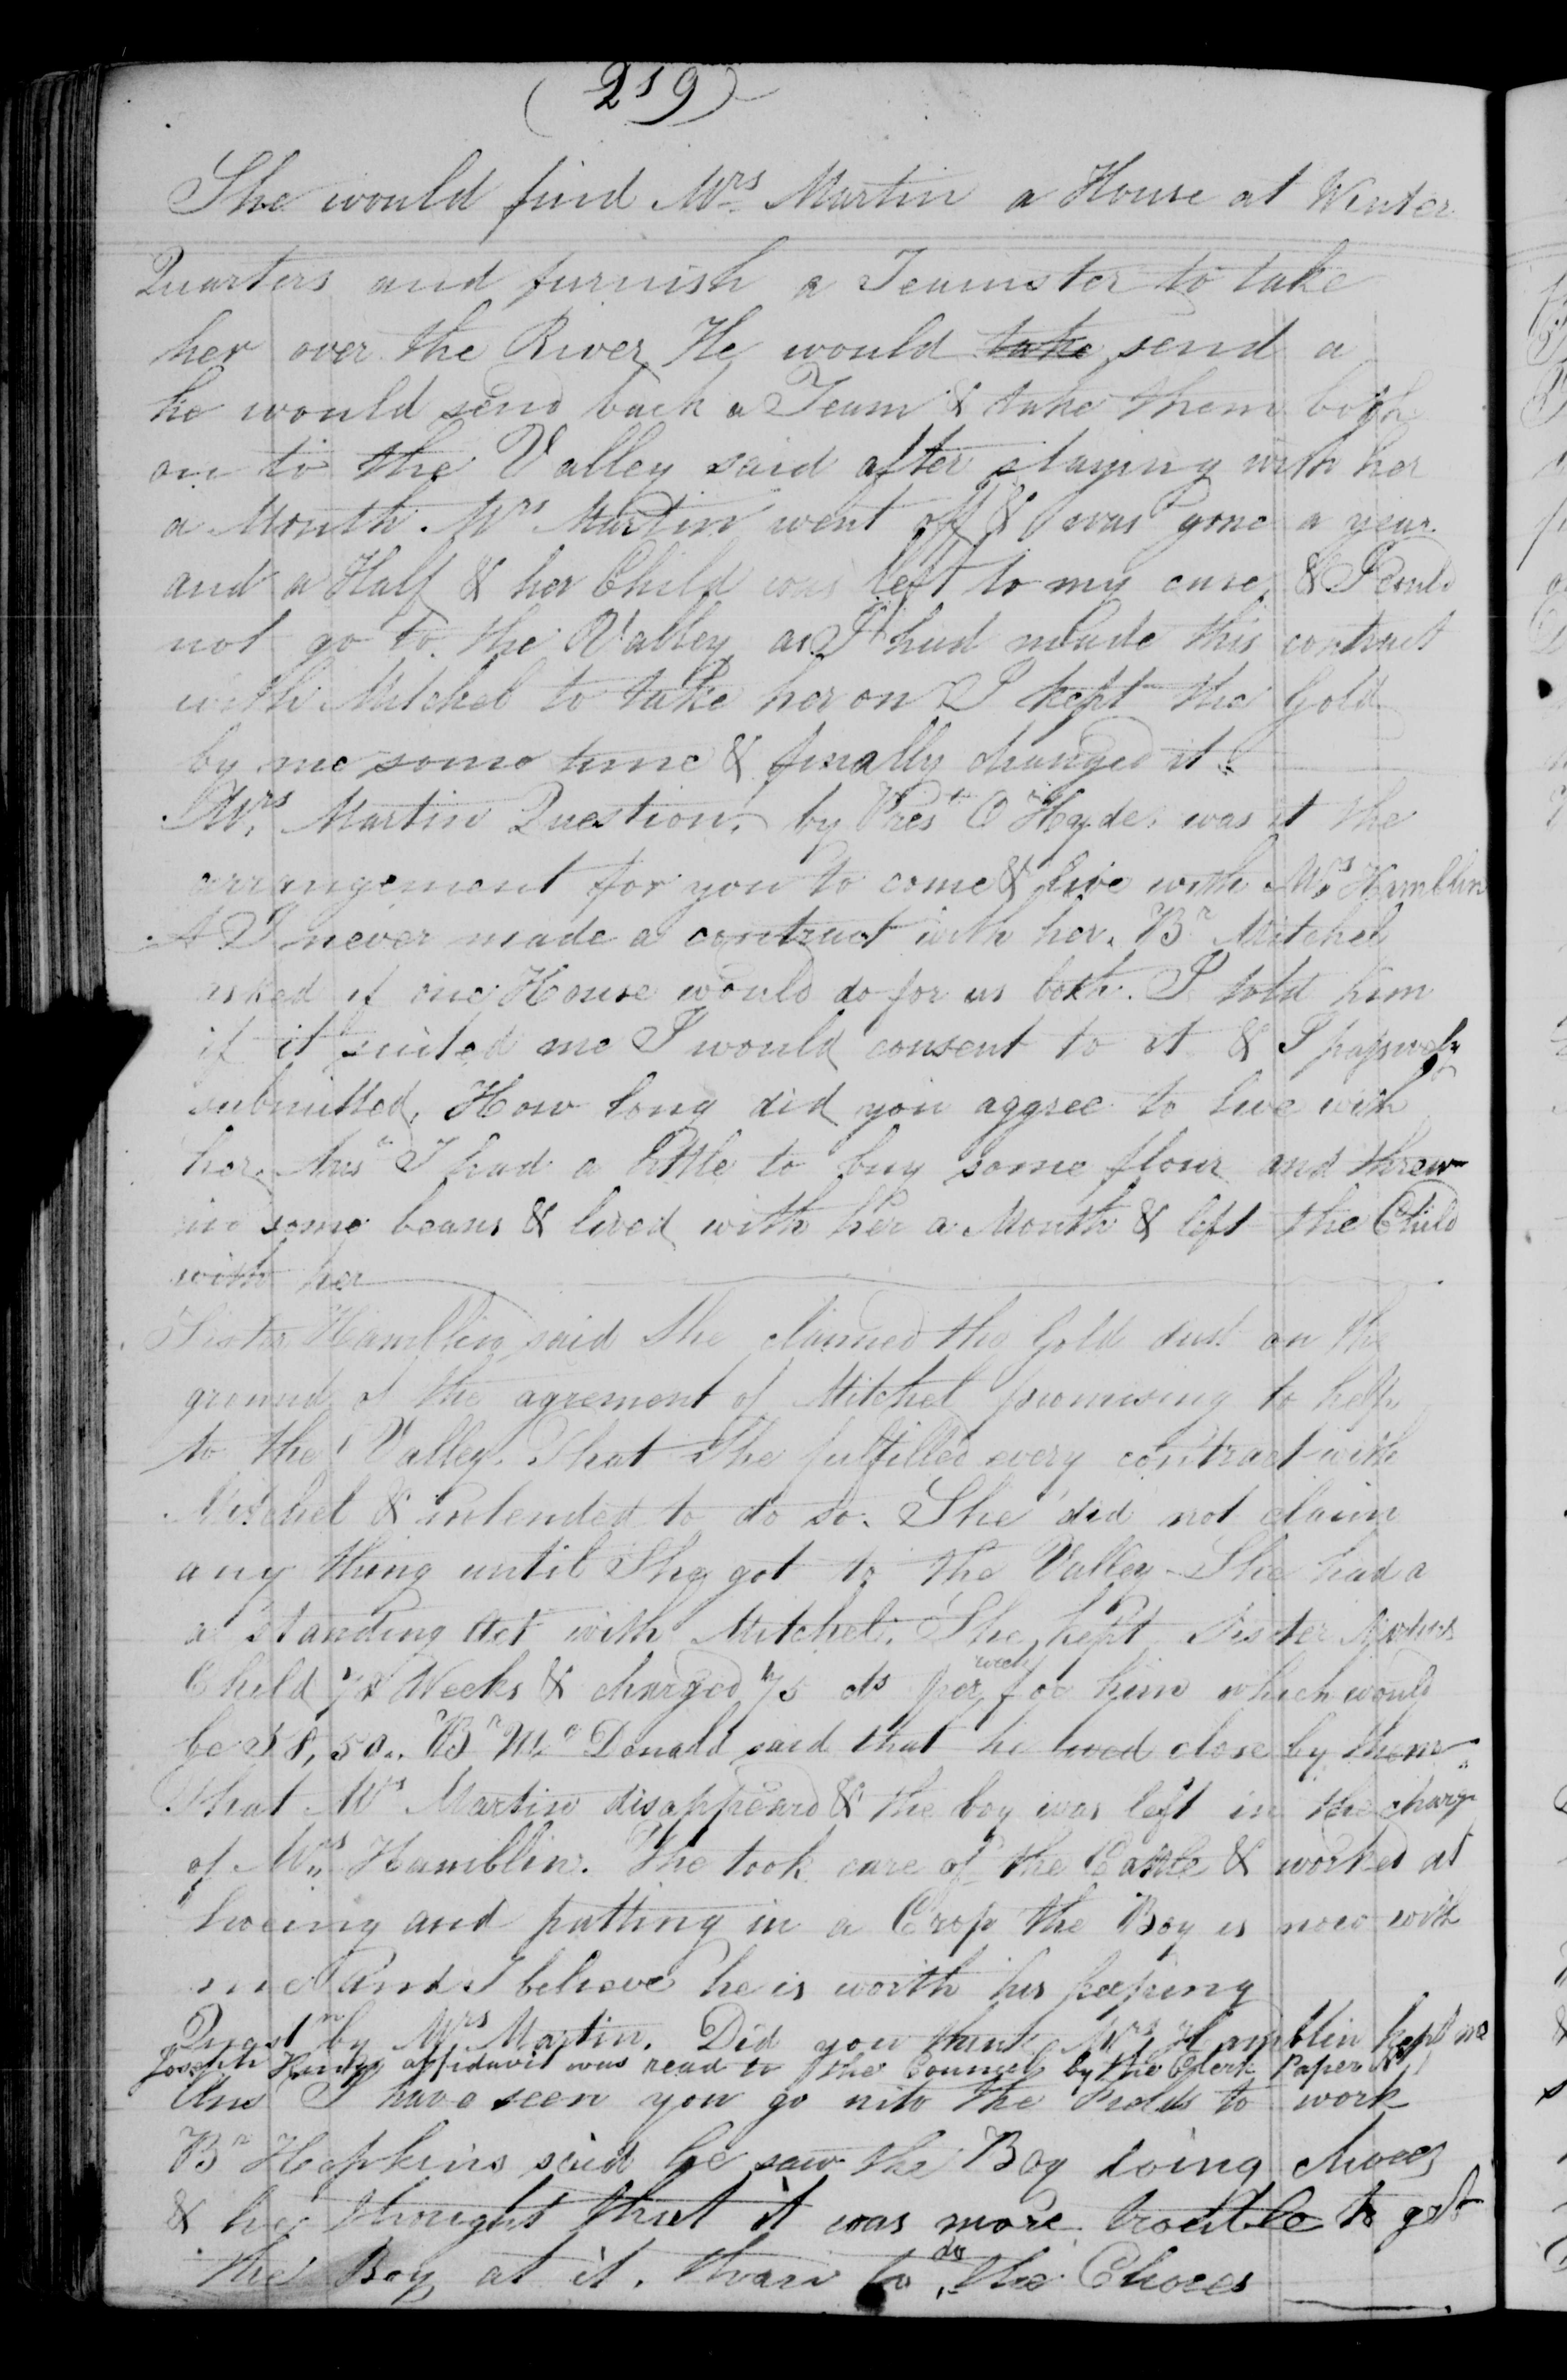 (219)
She would find Mrs Martin a House at Winter
Quarters and furnish a Teamster to take
her over the River He would take send a
he would send back a Team & take them both
on to the Valley said after staying with her
a Month. Mrs Martin went off & was gone a year
and a Half & her Child was left to my care, & I could
not go to the Valley as I had made this contract
with Mitchel to take her on I kept the Gold
by me some time & finally changed it.
Mrs Martin Question. by Prest O Hyde. was it the
arrangement for you to come & live with Mrs Hamblin
A I never made a contract with her. Br Mitchel
asked if one House would do for us both. I told him
if it suited me I would consent to it & I passively
submitted. How long did you aggree to live with
her. Ans I had a little to buy some flour and threw
in some beans & lived with her a Month & left the Child
with her
Sister Hamblin said She claimed the Gold dust on the
ground of the agrement of Mitchel promising to help
to the Valley. That She fulfilled every contract with
Mitchel & intended to do so. She did not claim
any thing until She got to the Valley - She had a
a standing Act with Mitchel. She kept Sister
Child 78 Weeks & charged 75 cts per week for him which would
be 58,50.. Br Mc Donald said that he lived close by them.
That Mrs Martin disappeard & the boy was left in the charge
of Mrs Hamblin. He took care of the Cattle & worked at
hoeing and putting in a Crop the Boy is now with
me and I believe he is worth his keeping
Questn by Mrs Martin. Did you think Mrs Hamblin kept me
Joseph affidavit was read to the Council by the Clerk Paper
Ans I have seen you go into the fields to work
Br Hopkins said he saw the Boy doing chores
& he thought that it was more trouble to get
the Boy at it. than to do the Chores